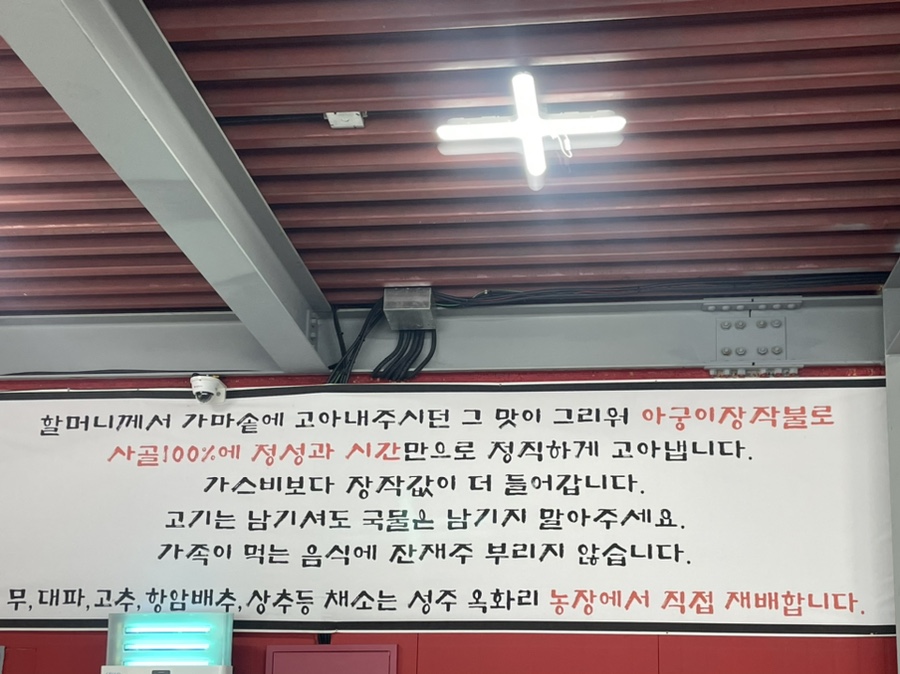 할머니께서 가마솥에 고아내주시던 그 맛이 그리워 아궁이장작불로
사골100%에 정성과 시간만으로 정직하게 고아냅니다.
가스비보다 장작값이 더 들어갑니다.
고기는 남기셔도 국물은 남기지 말아주세요.
가족이 먹는 음식에 잔재주 부리지 않습니다.
무,대파,고추,항암배추,상추등 채소는 성주 옥화리 농장에서 직접 재배합니다.